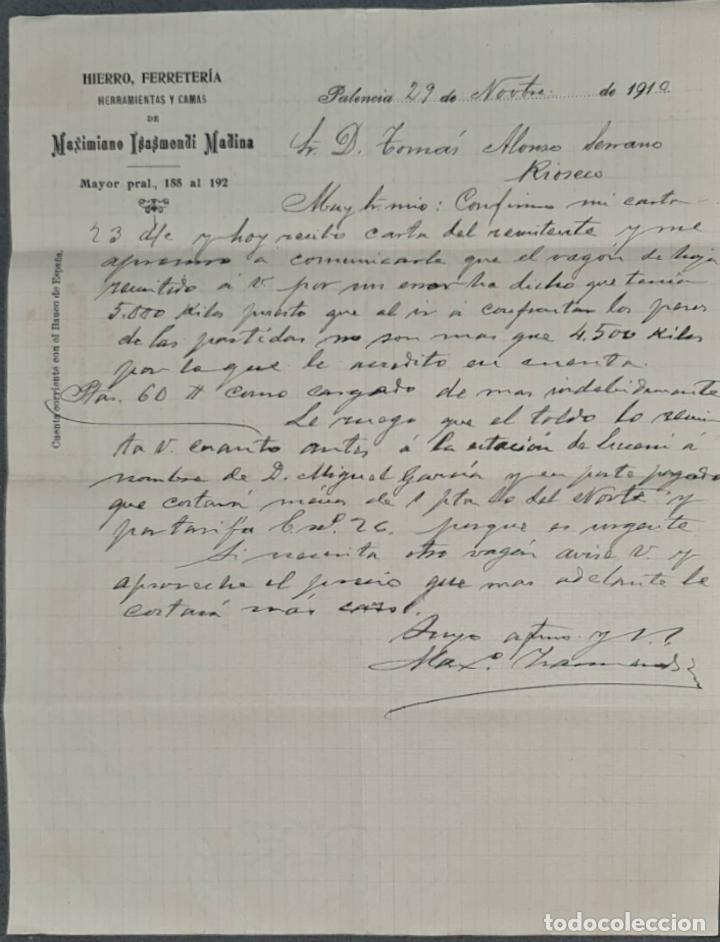 HIERRO, FERRETERÍA
HERRAMIENTAS Y CAMAS
DE
Maximiano Isasmendi Madina
Mayor pral., 188 al 192
Cuenta corriente con el Banco de España.
Palencia 29 de Novbre. de 1910
Sr. D. Tomás Alonso Serrano
Rioseco
Muy Sr. mio: Confirmo mi carta
23 d/c y hoy recibo carta del remitente y me
apresuro a comunicarle que el vagón de hoja
remitido á V. por un error ha dicho que tenía
5.000 Kilos puesto que al ir á confrontar los pesos
de las partidas no son mas que 4.500 Kilos
por lo que le acredito en cuenta
Ptas. 60 # como cargado de mas indebidamente
Le ruego que el toldo lo remi
ta V. cuanto antes á la estación de Luceni á
nombre de D. Miguel García y en porte pagado
que costará menos de 1 pta del Norte y
por tarifa 26 porque es urgente
Si necesita otro vagón avise V. y
aproveche el precio que mas adelante le
costará más caro.
Suyo afmo. y S.
Maxº. Isasmendi
todocoleccion